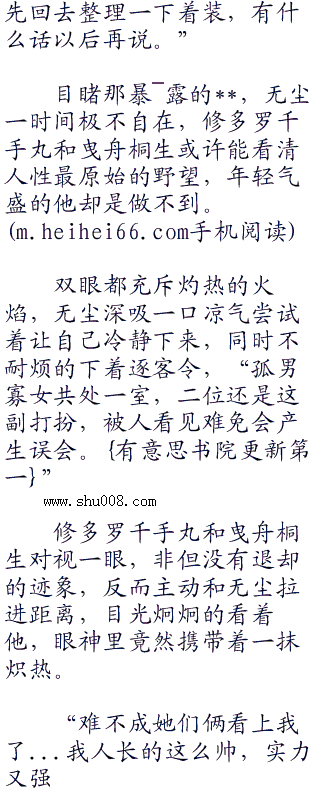 先回去整理一下着装，有什
么话以后再说。”
目睹那暴¯露的**，无尘
一时间极不自在，修多罗千
手丸和曳舟桐生或许能看清
人性最原始的野望，年轻气
盛的他却是做不到。
(m.heihei66.com手机阅读)
双眼都充斥灼热的火
焰，无尘深吸一口凉气尝试
着让自己冷静下来，同时不
耐烦的下着逐客令，“孤男
寡女共处一室，二位还是这
副打扮，被人看见难免会产
生误会。{有意思书院更新第
一}”
www.shu008.com
修多罗千手丸和曳舟桐
生对视一眼，非但没有退却
的迹象，反而主动和无尘拉
进距离，目光炯炯的看着
他，眼神里竟然携带着一抹
炽热。
“难不成她们俩看上我
了...我人长的这么帅，实力
又强